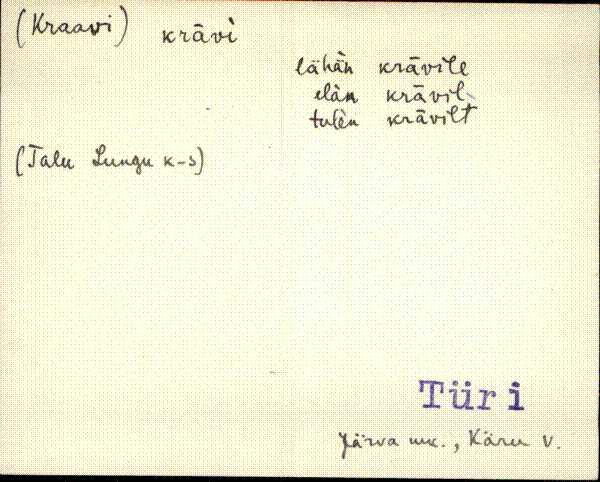 (Kraavi) krāvì
lähàn krāvile
elàn krāvil
tulèn krāvilt
(Talu Lungu k-s)
Türi
Järva mk., Käru v.